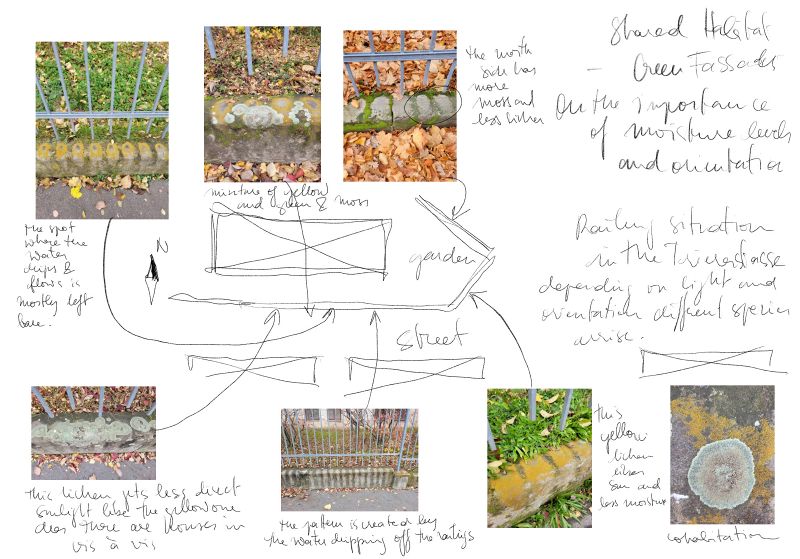 Shared Habitat
– Green Fassades
On the importance
of moisture levels
and orientation
the north
side has
more
moss and
less lichen
mixture of yellow
and green & moss
the spot
where the
water
drips &
flows is
mostly left
bare.
N
garden
Street
Railing situation
in the
depending on light and
orientation different species
arise.
This lichen gets less direct
sunlight like the yellow one
does there are houses in
vis à vis
the pattern is created by
the water dripping off the railings
this
yellow
lichen
likes
sun and
less moisture
cohabitation